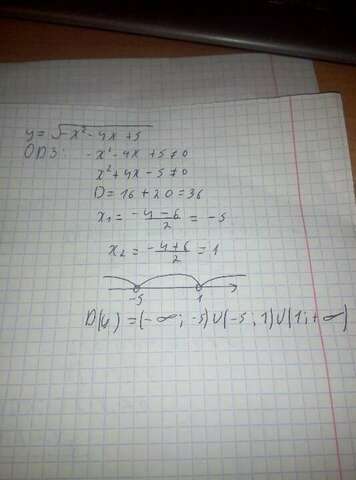 y = √(-x² - 4x + 5)
ОДЗ: -x² - 4x + 5 ≠ 0
x² + 4x - 5 ≠ 0
D = 16 + 20 = 36
x₁ = (-4-6)/2 = -5
x₂ = (-4+6)/2 = 1
-5 1
D(y) = (-∞; -5)∪(-5; 1)∪(1; +∞)